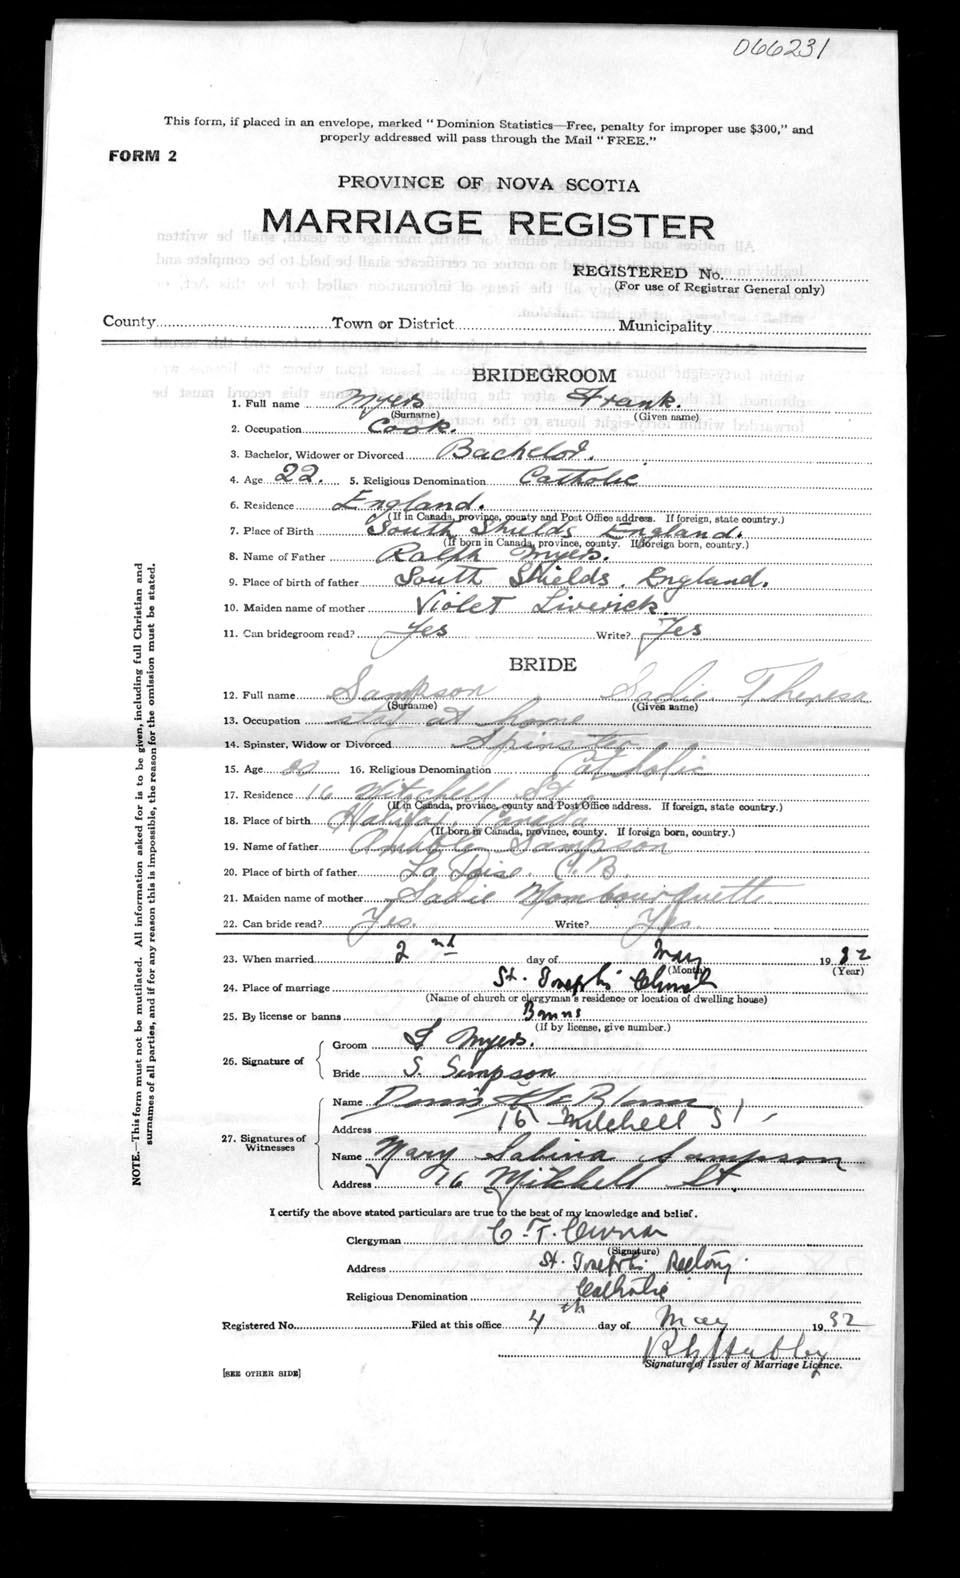 066231
This form, if placed in an envelope, marked "Dominion Statistics—Free, penalty for improper use $300," and
properly addressed will pass through the Mail "FREE."
FORM 2
PROVINCE OF NOVA SCOTIA
MARRIAGE REGISTER
REGISTERED No.
(For use of Registrar General only)
County Town or District Municipality
BRIDEGROOM
1. Full name Myers Frank.
(Surname) (Given name)
2. Occupation Cook.
3. Bachelor, Widower or Divorced Bachelor.
4. Age 22. 5. Religious Denomination Catholic
6. Residence England.
(If in Canada, province, county and Post Office address. If foreign, state country.)
7. Place of Birth South Shields England.
(If born in Canada, province, county. If foreign born, country.)
8. Name of Father Ralph Myers.
9. Place of birth of father South Shields. England.
10. Maiden name of mother Violet Liverick.
11. Can bridegroom read? Yes Write? Yes
BRIDE
12. Full name Sampson Sadie Theresa
(Surname) (Given name)
13. Occupation stay at home
14. Spinster, Widow or Divorced Spinster
15. Age 16. Religious Denomination Catholic
17. Residence 16 Mitchell St.
(If in Canada, province, county and Post Office address. If foreign, state country.)
18. Place of birth Halifax, Canada
(If born in Canada, province, county. If foreign born, country.)
19. Name of father Sampson
20. Place of birth of father C.B.
21. Maiden name of mother Sadie Mombourquette
22. Can bride read? Yes. Write? Yes.
23. When married 2nd day of May 1932
(Month) (Year)
24. Place of marriage St. Joseph's Church
(Name of church or clergyman's residence or location of dwelling house)
25. By license or banns Banns
(If by license, give number.)
26. Signature of
Groom F Myers.
Bride S. Simpson
27. Signatures of Witnesses
Name
Address 16 Mitchell St
Name Mary Sabina Sampson
Address 16 Mitchell St.
I certify the above stated particulars are true to the best of my knowledge and belief.
Clergyman C. F. Curran
(Signature)
Address St. Joseph's Rectory
Religious Denomination Catholic
Registered No. Filed at this office 4th day of May 1932
Signature of Issuer of Marriage Licence.
[SEE OTHER SIDE]
NOTE.—This form must not be mutilated. All information asked for is to be given, including full Christian and
surnames of all parties, and if for any reason this is impossible, the reason for the omission must be stated.